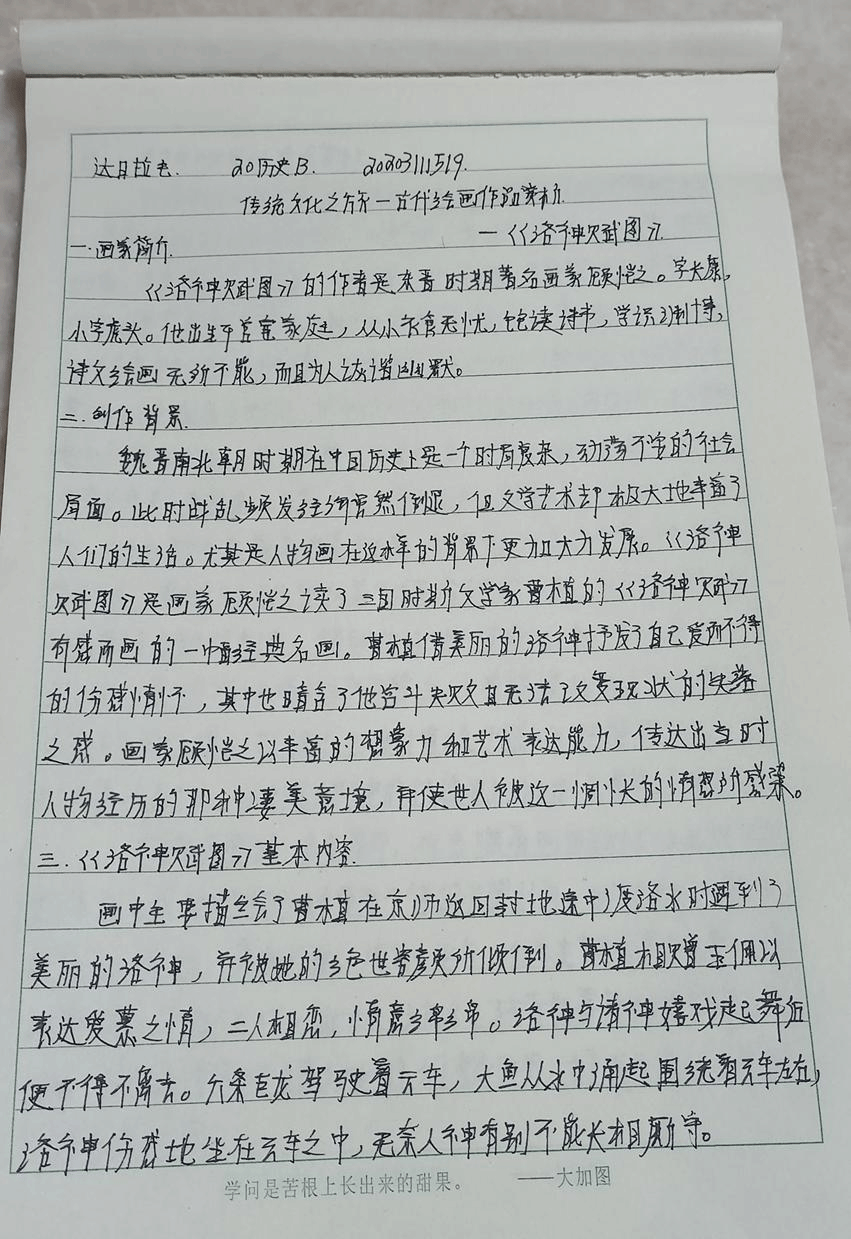 达日拉 20历史B. 20203111519.
传统文化之旅一古代绘画作品赏析
一.画家简介. 一《《洛神赋图》》.
《《洛神赋图》》的作者是东晋时期著名画家顾恺之。字长康,
小字虎头。他出生于官宦家庭,从小衣食无忧,饱读诗书,学识渊博,
诗文绘画无所不能,而且为人诙谐幽默。
二.创作背景.
魏晋南北朝时期在中国历史上是一个时局复杂,动荡不安的社会
局面。此时战乱频发经济虽然倒退,但文学艺术却极大地丰富了
人们的生活。尤其是人物画在这样的背景下更加大力发展。《《洛神
赋图》》是画家顾恺之读了三国时期文学家曹植的《《洛神赋》》
有感而画的一幅经典名画。曹植借美丽的洛神抒发了自己爱而不得
的伤感情怀,其中也暗含了他官斗失败又且无法改变现状的失落
之感。画家顾恺之以丰富的想象力和艺术表达能力,传达出当时
人物经历的那种凄美意境,并使世人被这一惆怅的情愁所感染。
三.《《洛神赋图》》基本内容.
画中主要描绘了曹植在京师返回封地途中渡洛水时遇到了
美丽的洛神,并被她的绝世容颜所倾倒。曹植相赠玉佩以
表达爱慕之情,二人相恋,情意绵绵。洛神与诸神嬉戏起舞后
便不得不离去。六条巨龙驾驶着云车,大鱼从水中涌起围绕着云车左右,
洛神伤感地坐在云车之中,无奈人神有别不能长相厮守。
学问是苦根上长出来的甜果。 ——大加图